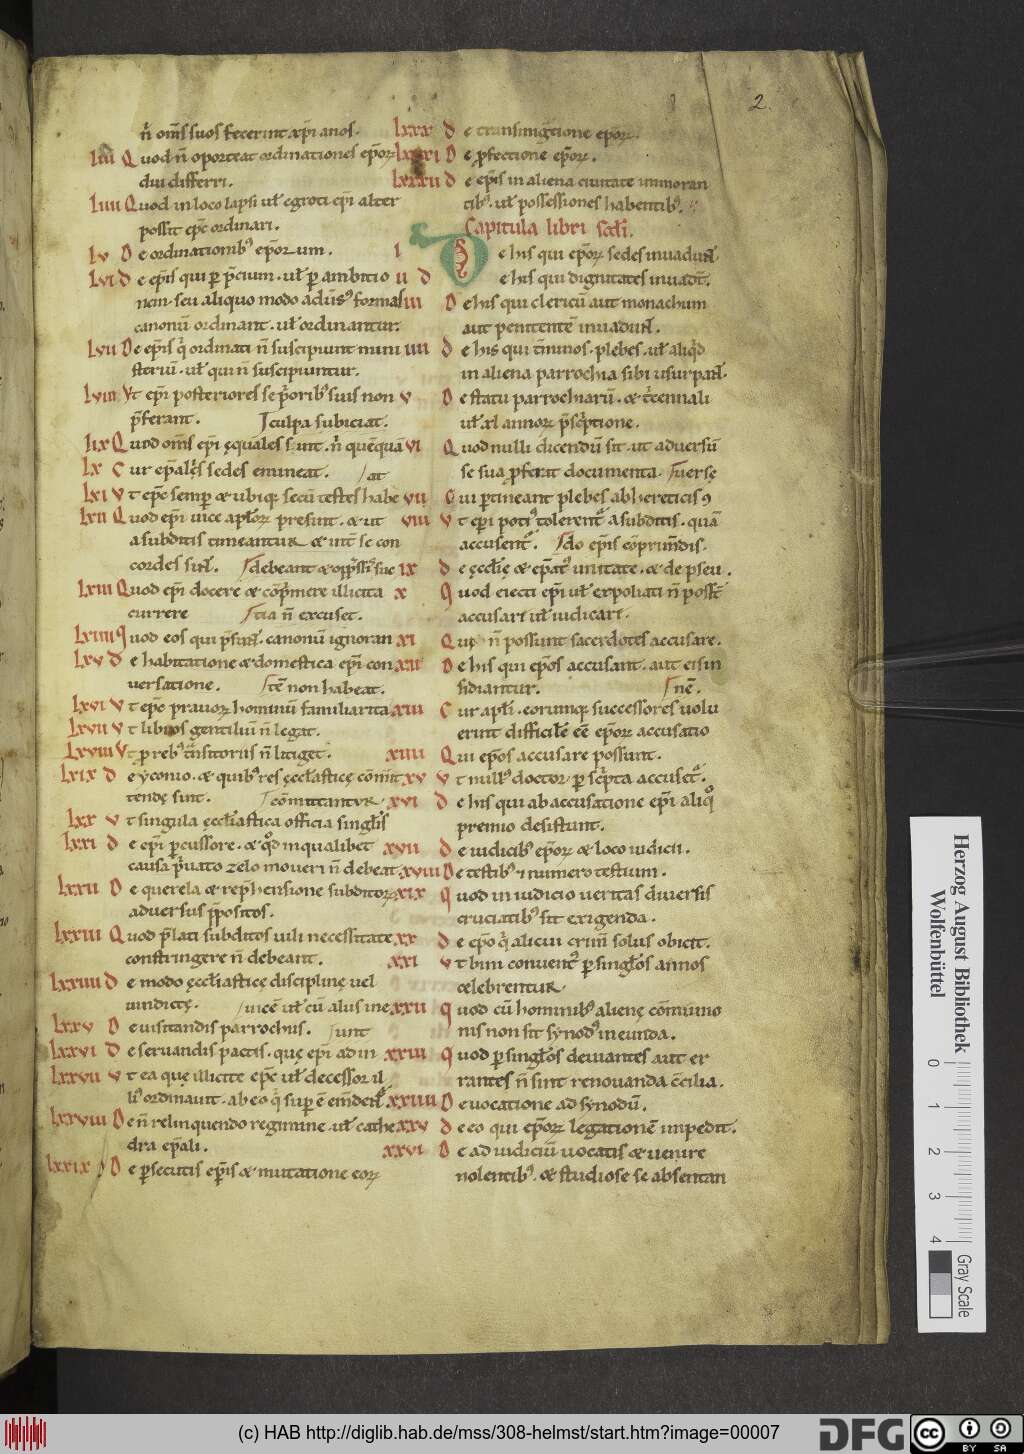 2.
nͬ oms̄ suos fecerint xp̄i anos.
liii Quod n̄ oporteat ordinationes ep̄oꝝ
diu differri.
liiii Quod in loco lapsi ul̄ egroti ep̄i alter
possit ep̄c ordinari.
lv De ordinationibꝰ ep̄orum.
lvi De ep̄is qui p p̄cium. ul̄ p ambitio
nem. seu aliquo modo adūsꝰ formas
canonū ordinant. ul̄ ordinantur.
lvii De ep̄is qͥ ordinati n̄ suscipiunt mini
steriū. ul̄ qui n̄ suscipiuntur.
lviii Vt ep̄i posteriores se p̄oribꝰ suis non
p̄ferant. culpa subiciat.
lix Quod oms̄ ep̄i ęquales sunt. nͬ quēquā
lx Cur ep̄ales sedes emineat. at
lxi Vt ep̄c semp & ubiq; secū testes habe
lxii Quod ep̄i uice apl̄oꝝ presint. & ut
a subditis timeantur & int̄ se con
cordes sint. debeant & opp̄ssis suc
lxiii Quod ep̄i docere & cōp̄mere illicita
currere tia n̄ excuset.
lxiiii Quod eos qui p̄sunt. canonū ignoran
lxv De habitatione & domestica ep̄i con
uersatione. tē non habeat.
lxvi Vt ep̄c prauoꝝ hominū familiarita
lxvii Vt libros gentiliū n̄ legat.
lxviii Vt p rebꝰ t̄nsitoriis n̄ litiget.
lxix De yconio. & quibꝰ res ęccl̄asticę cōmit
tendę sint. cōmittantur.
lxx Vt singula ęccl̄iastica officia singl̄is
lxxi De ep̄i pcussore. & qd̄ in qualibet
causa p̄uato zelo moueri n̄ debeat
lxxii De querela & rep̄hensione subditoꝝ
aduersus p̄positos.
lxxiii Quod p̄lati subditos uili necessitate
constringere n̄ debeant.
lxxiiii De modo ęccl̄iasticę disciplinę uel
uindictę. uicē ul̄ cū aliis ine
lxxv De uisitandis parrochiis. unt
lxxvi De seruandis pactis. quę ep̄i ad in
lxxvii Vt ea quę illicite ep̄c ul̄ decessor il
liꝰ ordinauit. ab eo qͥ sup ē emēdent̄
lxxviii De n̄ relinquendo regimine. ul̄ cathe
dra ep̄ali.
lxxix De psecutis ep̄is & mutatione eoꝝ
lxxx De transmigratione ep̄oꝝ.
lxxxi De pfectione ep̄oꝝ.
lxxxii De ep̄is in aliena ciuitate immoran
tibꝰ. ul̄ possessiones habentibꝰ.
Capitula libri scd̄i.
i De his qui ep̄oꝝ sedes inuadunt
ii De his qui dignitates inuadt̄.
iii De his qui clericū aut monachum
aut penitentē inuadunt.
iiii De his qui t̄minos. plebes. ul̄ aliqd̄
in aliena parrochia sibi usurpant.
v De statu parrochiarū. & t̄cennali
ul̄ xl annoꝝ p̄scptione.
vi Quod nulli dicendū sit. ut aduersū
se sua pferat documenta. uerse
vii Cui ptineant plebes ab hereticis ꝯ
viii Vt ep̄i potiꝰ tolerent̄ a subditis. quā
accusent̄. do ep̄is cōprim̄dis.
ix De ęccl̄ię & ep̄atꝰ unitate. & de pseu.
x Quod eiecti ep̄i ul̄ expoliati n̄ posst̄
accusari ul̄ iudicari.
xi Qui n̄ possunt sacerdotes accusare.
xii De his qui ep̄os accusant. aut eis in
sidiantur. nē.
xiii Cur apl̄i. eorumq; successores uolu
erint difficile ēe ep̄oꝝ accusatio
xiiii Qui ep̄os accusare possunt.
xv Vt nullꝰ doctor p sc̄pta accuset̄.
xvi De his qui ab accusatione ep̄i aliqͦ
premio desistunt.
xvii De iudicibꝰ ep̄oꝝ & loco iudicii.
xviii De testibꝰ & numero testium.
xix Quod in iudicio ueritas diuersis
cruciatibꝰ sit exigenda.
xx De ep̄o qͥ alicui crim̄ solus obicit.
xxi Vt bini conuentꝰ p singl̄os annos
celebrentur.
xxii Quod cū hominibꝰ alienę cōmunio
nis non sit synodꝰ ineunda.
xxiii Quod p singl̄os deuiantes aut er
rantes n̄ sint renouanda c̄cilia.
xxiiii De uocatione ad synodū.
xxv De eo qui ep̄oꝝ legationē impedit.
xxvi De ad iudiciū uocatis & uenire
nolentibꝰ. & studiose se absentan
Herzog August Bibliothek
Wolfenbüttel
0 1 2 3 4
Gray Scale
(c) HAB http://diglib.hab.de/mss/308-helmst/start.htm?image=00007
DFG
CC BY SA